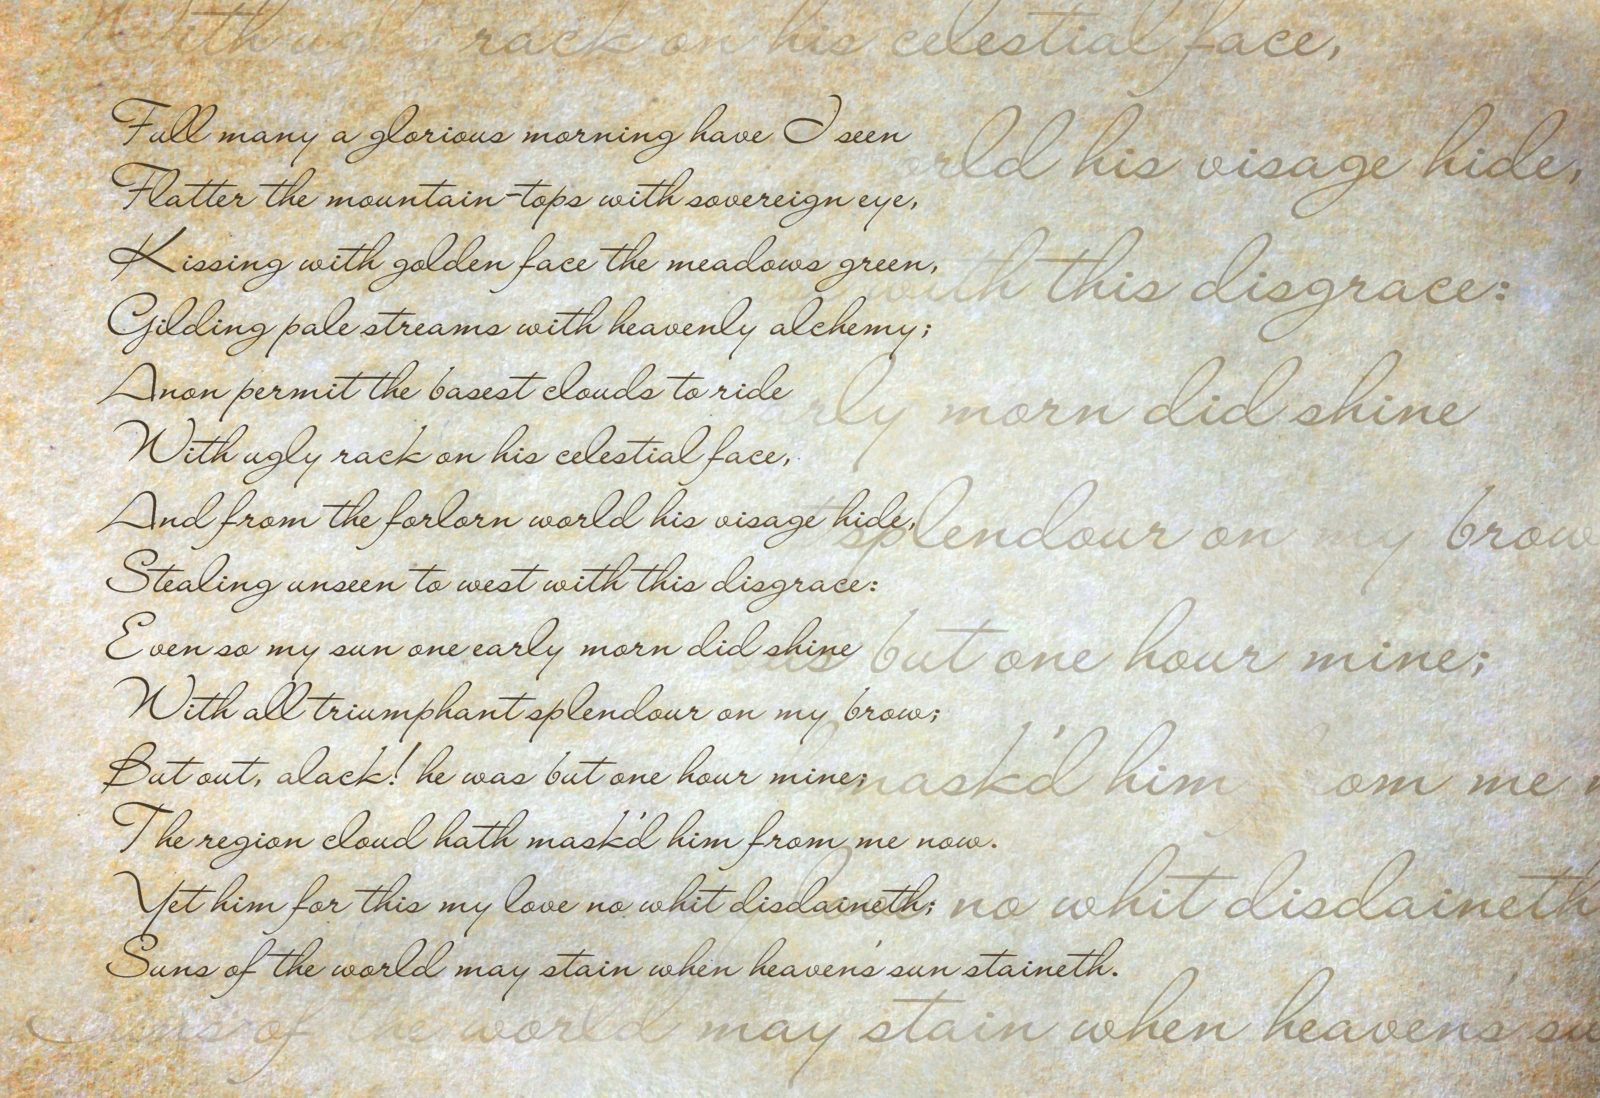 With ugly rack on his celestial face,
Full many a glorious morning have I seen
orld his visage hide,
Flatter the mountain-tops with sovereign eye,
Kissing with golden face the meadows green,
with this disgrace:
Gilding pale streams with heavenly alchemy;
Anon permit the basest clouds to ride
arly morn did shine
With ugly rack on his celestial face,
And from the forlorn world his visage hide,
splendour on my brow
Stealing unseen to west with this disgrace:
Even so my sun one early morn did shine
as but one hour mine;
With all triumphant splendour on my brow;
But out, alack! he was but one hour mine;
mask'd him from me n
The region cloud hath mask'd him from me now.
Yet him for this my love no whit disdaineth;
no whit disdaineth
Suns of the world may stain when heaven's sun staineth.
Suns of the world may stain when heaven's su